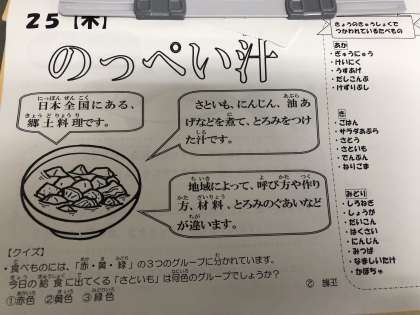 25【木】
のっぺい汁
日本全国にある、
郷土料理です。
さといも、にんじん、油あ
げなどを煮て、とろみをつけ
た汁です。
地域によって、呼び方や作り
方、材料、とろみのぐあいなど
が違います。
【クイズ】
・食べものには、「赤・黄・緑」の３つのグループに分かれています。
今日の給食に出てくる「さといも」は何色のグループでしょうか？
①赤色　②黄色　③緑色
きょうのきゅうしょくで
つかわれているたべもの
あか
・ぎゅうにゅう
・けいにく
・うすあげ
・だしこんぶ
・けずりぶし
き
・ごはん
・サラダあぶら
・さとう
・さといも
・でんぷん
・ねりごま
みどり
・しろねぎ
・しょうが
・だいこん
・はくさい
・にんじん
・みつば
・なましいたけ
・かぼちゃ